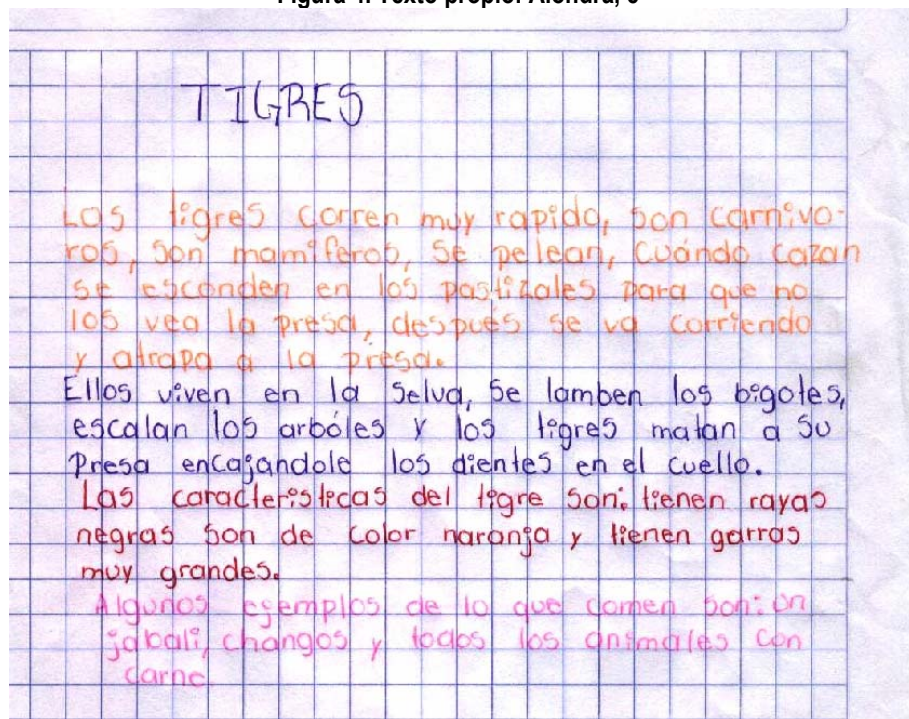 TIGRES
Los tigres corren muy rapido, son carnivo-
ros, son mamiferos, se pelean, Cuándo cazan
se esconden en los pastizales para que no
los vea la presa, después se va corriendo
y atrapa a la presa.
Ellos viven en la Selva, se lamben los bigotes,
escalan los arbóles y los tigres matan a su
Presa encajandole los dientes en el cuello.
Las caracteristicas del tigre son: tienen rayas
negras son de color naranja y tienen garras
muy grandes.
Algunos ejemplos de lo que comen son: un
jabali, changos y todos los animales con
carne